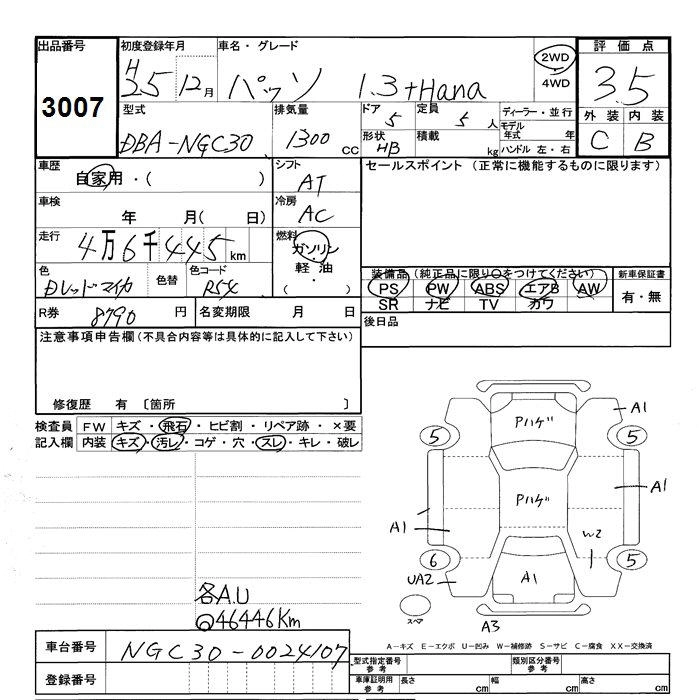 出品番号 初度登録年月 車名・グレード 評価点
3007 H25 12月 パッソ 1.3+Hana 2WD 4WD 3.5
型式 排気量 ドア 定員 ディーラー・並行 外装 内装
DBA-NGC30 1300 CC 5 5人 モデル年式 年 C B
形状 HB 積載 kg ハンドル 左・右
車歴 シフト セールスポイント (正常に機能するものに限ります)
自家用・( ) AT
車検 冷房
年 月( 日) AC
走行 燃料
4万6千445km ガソリン
軽油
( )
色 色替 色コード 装備品(純正品に限り○をつけてください) 新車保証書
Dレッドマイカ R54 PS PW ABS エアB AW 有・無
SR ナビ TV カワ
R券 8790円 名変期限 月 日 後日品
注意事項申告欄(不具合内容等は具体的に記入して下さい)
修復歴 有 〔箇所 〕
検査員 FW キズ・飛石・ヒビ割・リペア跡・×要
記入欄 内装 キズ・汚レ・コゲ・穴・スレ・キレ・破レ
Pハゲ A1
5 5
Pハゲ
A1 A1
W2
6 5
UA2 A1
スペア A3
各A.U
◎46446Km
A-キズ E-エクボ U-凹み W-補修跡 S-サビ C-腐食 XX-交換済
車台番号 NGC30-0024107
型式指定番号 参考 類別区分番号 参考
登録番号 車庫証明用 参考 長さ cm 幅 cm 高さ cm